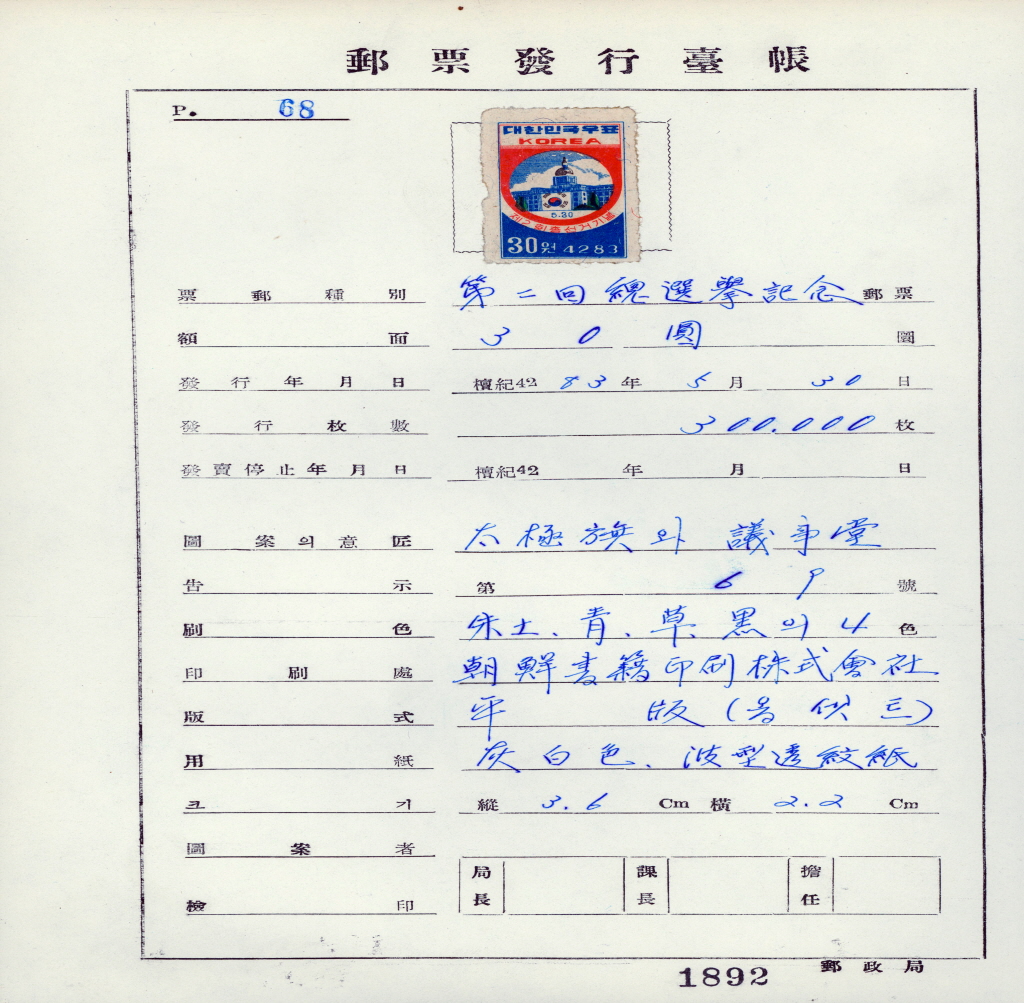 郵票發行臺帳
P. 68
대한민국우표
KOREA
5.30
제2회총선거기념
30원 4283
票郵種別 第二回總選擧記念 郵票
額面 30圓 圜
發行年月日 檀紀42 83年 5月 30日
發行枚數 300.000枚
發賣停止年月日 檀紀42 年 月 日
圖案의意匠 太極旗와 議事堂
告示 第 69 號
刷色 朱土、靑、草、黑의 4色
印刷處 朝鮮書籍印刷株式會社
版式 平版(옵셋트)
用紙 灰白色、波型透紋紙
크기 縱 3.6 Cm 橫 2.2 Cm
圖案者
檢印 局長 課長 擔任
1892 郵政局